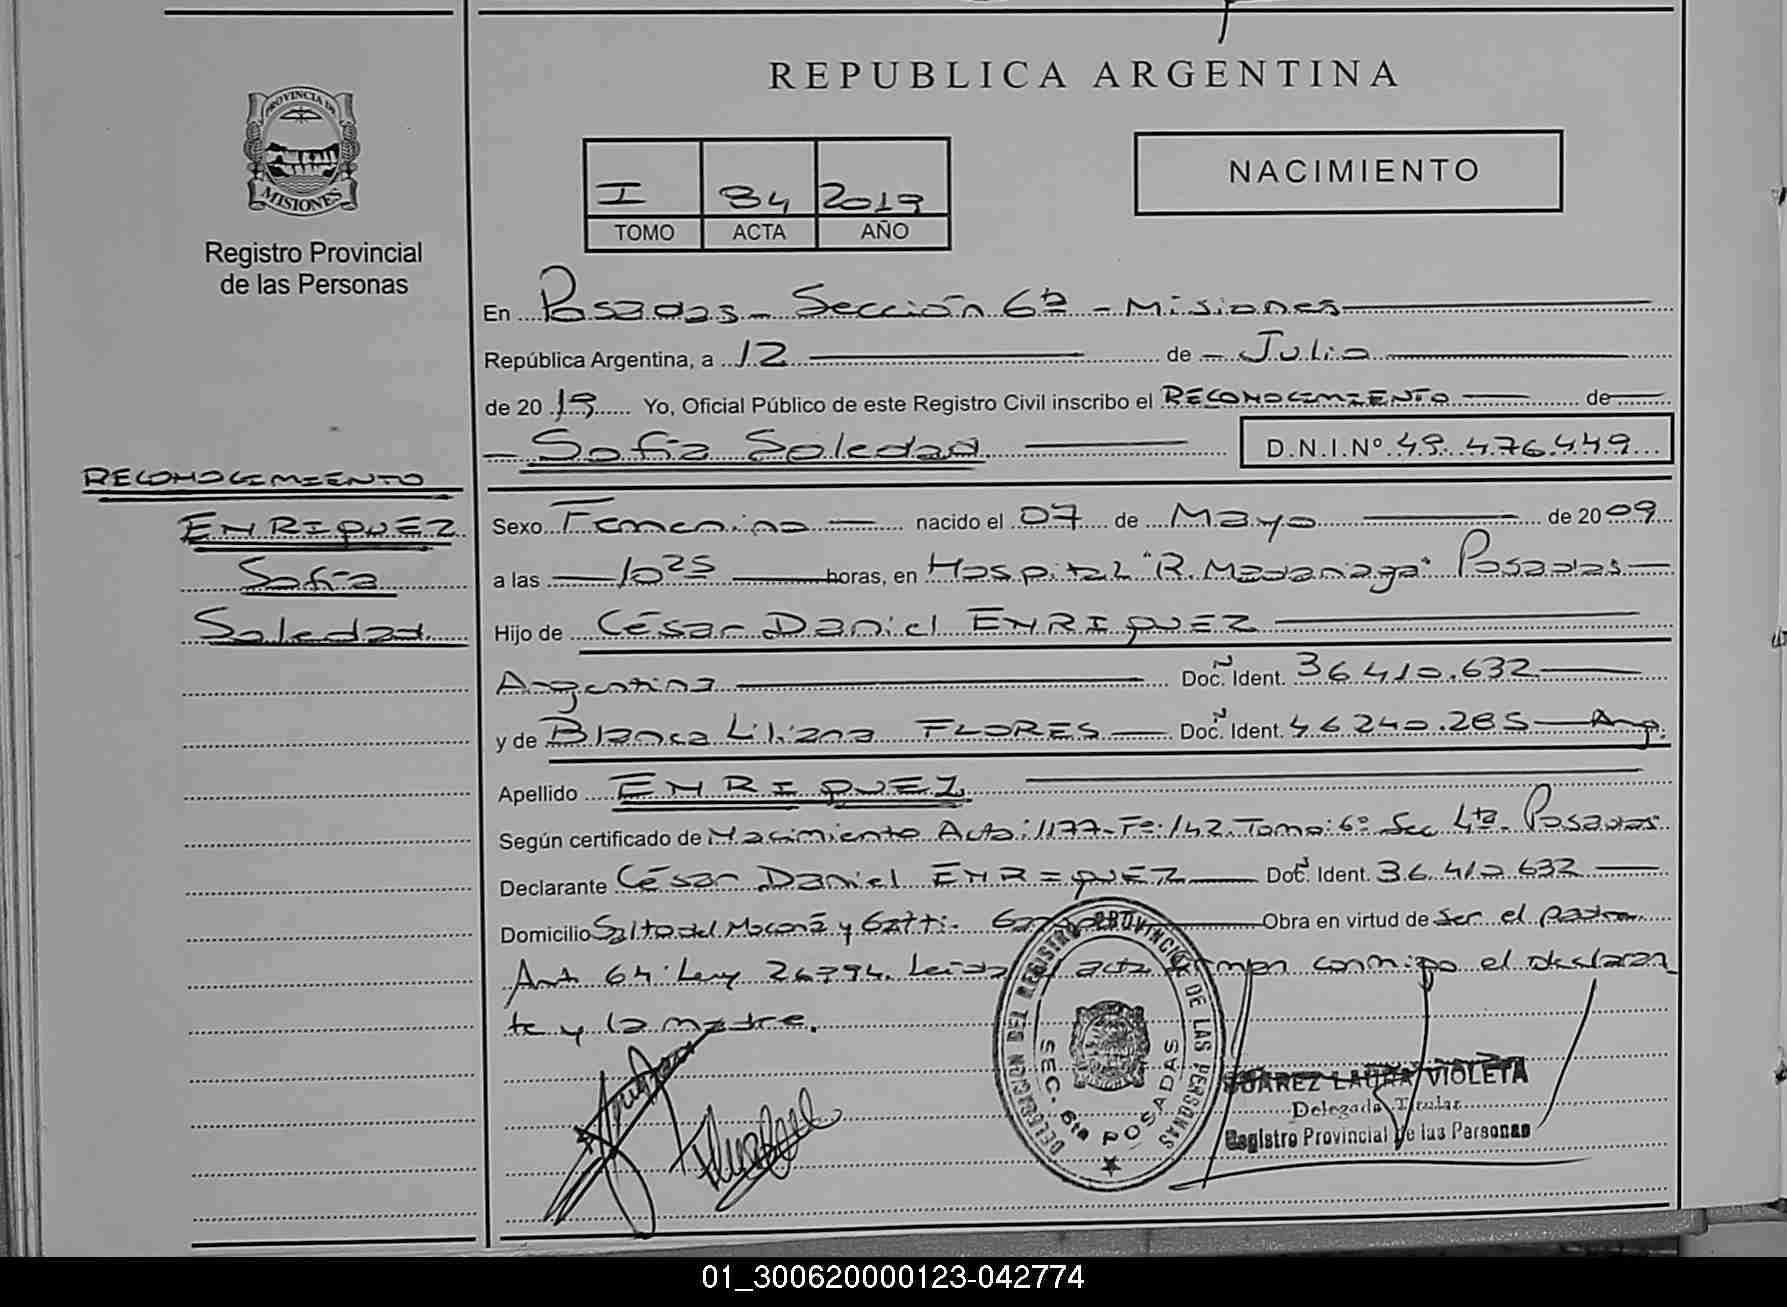 REPUBLICA ARGENTINA
PROVINCIA DE
MISIONES
Registro Provincial
de las Personas
NACIMIENTO
I 94 2019
TOMO ACTA AÑO
En Posadas - Sección 6ta - Misiones
República Argentina, a 12 de - Julio
de 20 19 Yo, Oficial Público de este Registro Civil inscribo el RECONOCIMIENTO de
- Sofia Soledad D.N.I.Nº 49.476.449
RECONOCIMIENTO
ENRIQUEZ
Sofia
Soledad
Sexo Femenino nacido el 07 de Mayo de 20 09
a las 10 25 horas, en Hospital "R. Madariaga" Posadas
Hijo de César Daniel ENRIQUEZ
Argentina Doc. Ident. 36.410.632
y de Blanca Liliana FLORES Doc. Ident. 46.240.285 Arg.
Apellido ENRIQUEZ
Según certificado de Nacimiento Acta: 1177 - Fº: 142 - Tomo: 6º Sec 4ta. Posadas
Declarante César Daniel ENRIQUEZ Doc. Ident. 36.410.632
Domicilio Salto del Moconá y Gatti - Obra en virtud de ser el padre
Art. 64 Ley 26994. Leída acta firman conmigo el declaran
te y la madre.
DELEGACION DEL REGISTRO PROVINCIAL DE LAS PERSONAS
SEC. 6ta POSADAS
SUAREZ LAURA VIOLETA
Delegada Titular
Registro Provincial de las Personas
01_300620000123-042774